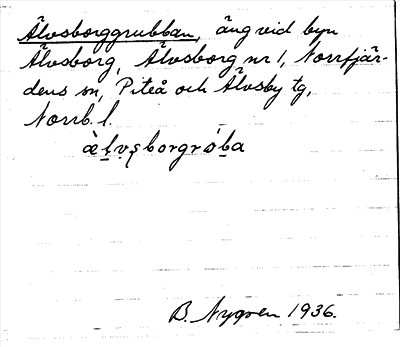 Älvsborggrubban, äng vid byn
Älvsborg, Älvsborg nr 1, Norrfjär-
dens sn, Piteå och Älvsby tg,
Norrb. l.
æ̀ḷv̥s̥borgrǿb̠a
B. Nygren 1936.